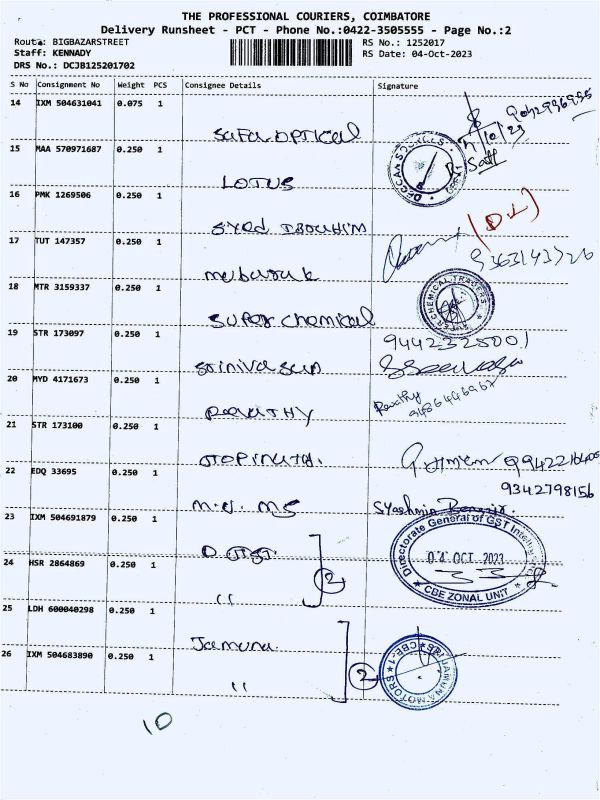 THE PROFESSIONAL COURIERS, COIMBATORE
Delivery Runsheet - PCT - Phone No.:0422-3505555 - Page No.:2
Route: BIGBAZARSTREET
RS No.: 1252017
Staff: KENNADY
RS Date: 04-Oct-2023
DRS No.: DCJB125201702
S No Consignment No Weight PCS Consignee Details Signature
14 IXM 504631041 0.075 1
Safa OPTICAL
15 MAA 570971687 0.250 1
LOTUS
16 PMK 1269506 0.250 1
Syed IBRAHIM
17 TUT 147357 0.250 1
mubarak
18 MTR 3159337 0.250 1
SUPER CHEMICAL TRADERS
Super chemical
19 STR 173097 0.250 1
9442325001
Srinivasan
20 MYD 4171673 0.250 1
Revathy
REVATHY
21 STR 173100 0.250 1
GOPINATH.
22 EDQ 33695 0.250 1
9342798156
23 IXM 504691879 0.250 1
Directorate General of GST
04 OCT 2023
CBE ZONAL UNIT
24 HSR 2864869 0.250 1
2
"
25 LDH 600040298 0.250 1
Jamuna
26 IXM 504683890 0.250 1
JAMUNA MOTORS CBE-1
"
2
10